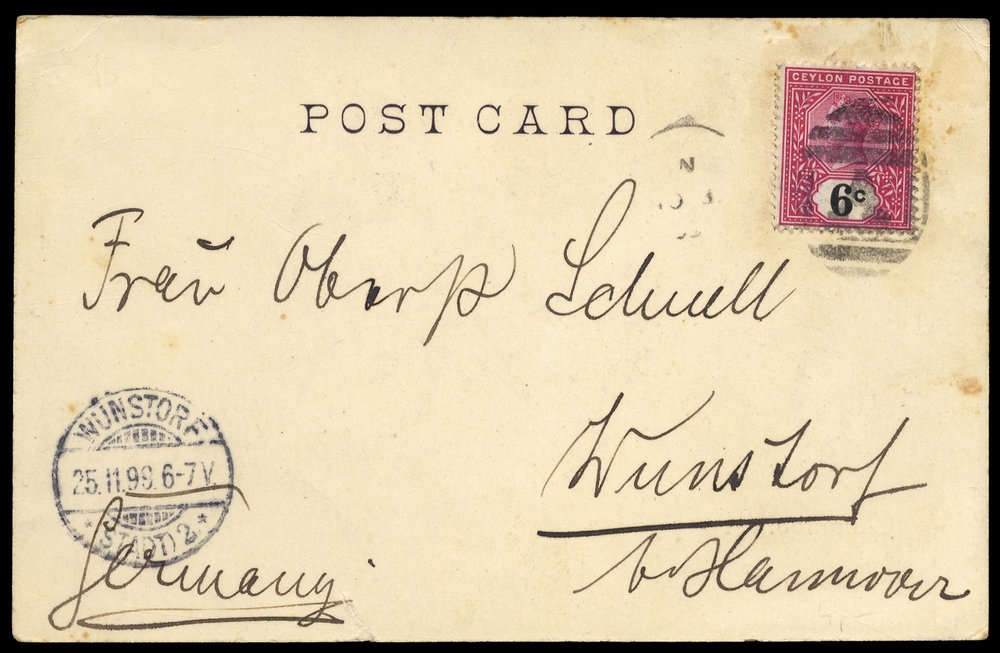 POST CARD
CEYLON POSTAGE
6c
Frau Oberp Schnell
Wunstorf
b. Hannover
WUNSTORF
25.11.99. 6-7 V.
* (STADT) 2. *
Germany